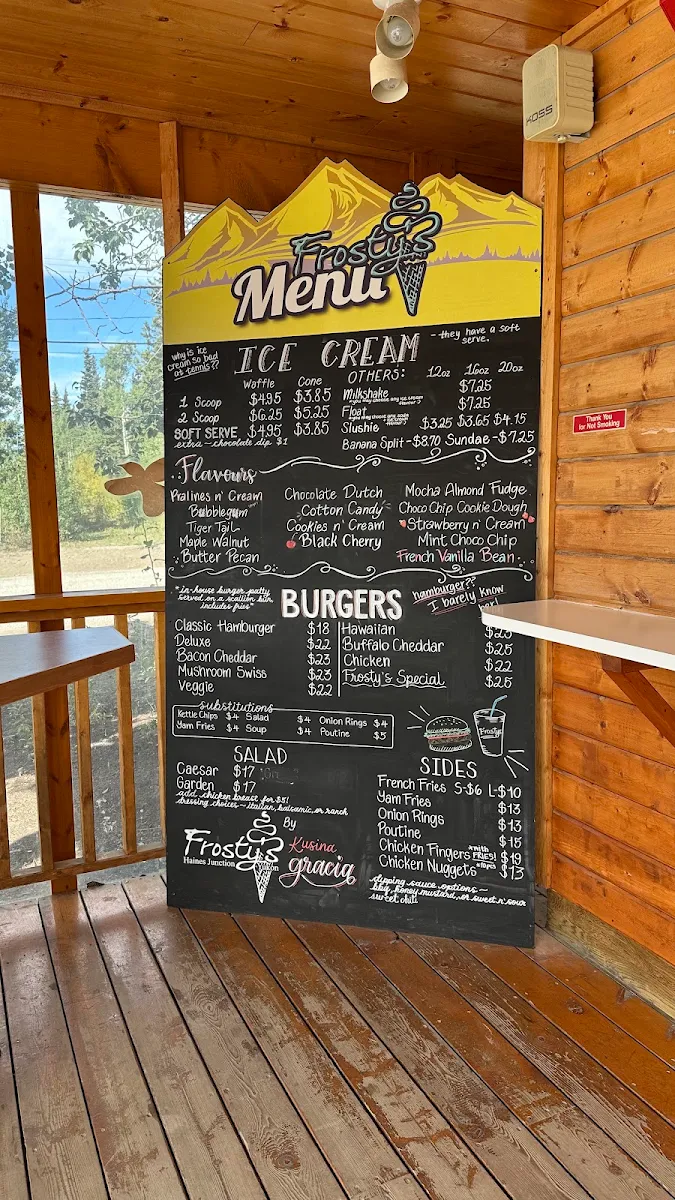 KOSS
Frosty's
Menu
Thank You
for Not Smoking
why is ice
cream so bad
at tennis??
ICE CREAM
- they have a soft
serve.
Waffle Cone
1 Scoop $4.95 $3.85
2 Scoop $6.25 $5.25
SOFT SERVE $4.95 $3.85
extra - chocolate dip $1
OTHERS: 12oz 16oz 20oz
Milkshake $7.25
*you may choose any ice cream
flavour
Float $7.25
*you may choose any soda
Slushie $3.25 $3.65 $4.15
Banana Split - $8.70 Sundae - $7.25
Flavours
Pralines n' Cream
Bubblegum
Tiger Tail
Maple Walnut
Butter Pecan
Chocolate Dutch
Cotton Candy
Cookies n' Cream
Black Cherry
Mocha Almond Fudge
Choco Chip Cookie Dough
Strawberry n' Cream
Mint Choco Chip
French Vanilla Bean
*in-house burger patty
served on a scallion bun,
includes fries*
BURGERS
hamburger??
I barely know
her!
Classic Hamburger $18
Deluxe $22
Bacon Cheddar $23
Mushroom Swiss $23
Veggie $22
Hawaiian $23
Buffalo Cheddar $25
Chicken $22
Frosty's Special $25
substitutions
Kettle Chips $4 Salad $4 Onion Rings $4
Yam Fries $4 Soup $4 Poutine $5
Frosty's
SALAD
Caesar $17
Garden $17
add chicken breast for $5!
dressing choices - italian, balsamic, or ranch
SIDES
French Fries S-$6 L-$10
Yam Fries $13
Onion Rings $13
Poutine $15
Chicken Fingers *with FRIES! $19
Chicken Nuggets *10pcs $13
dipping sauce options -
bbq, honey mustard, or sweet n' sour
sweet chili
Frosty's
Haines Junction Yukon
By
Kusina
gracia